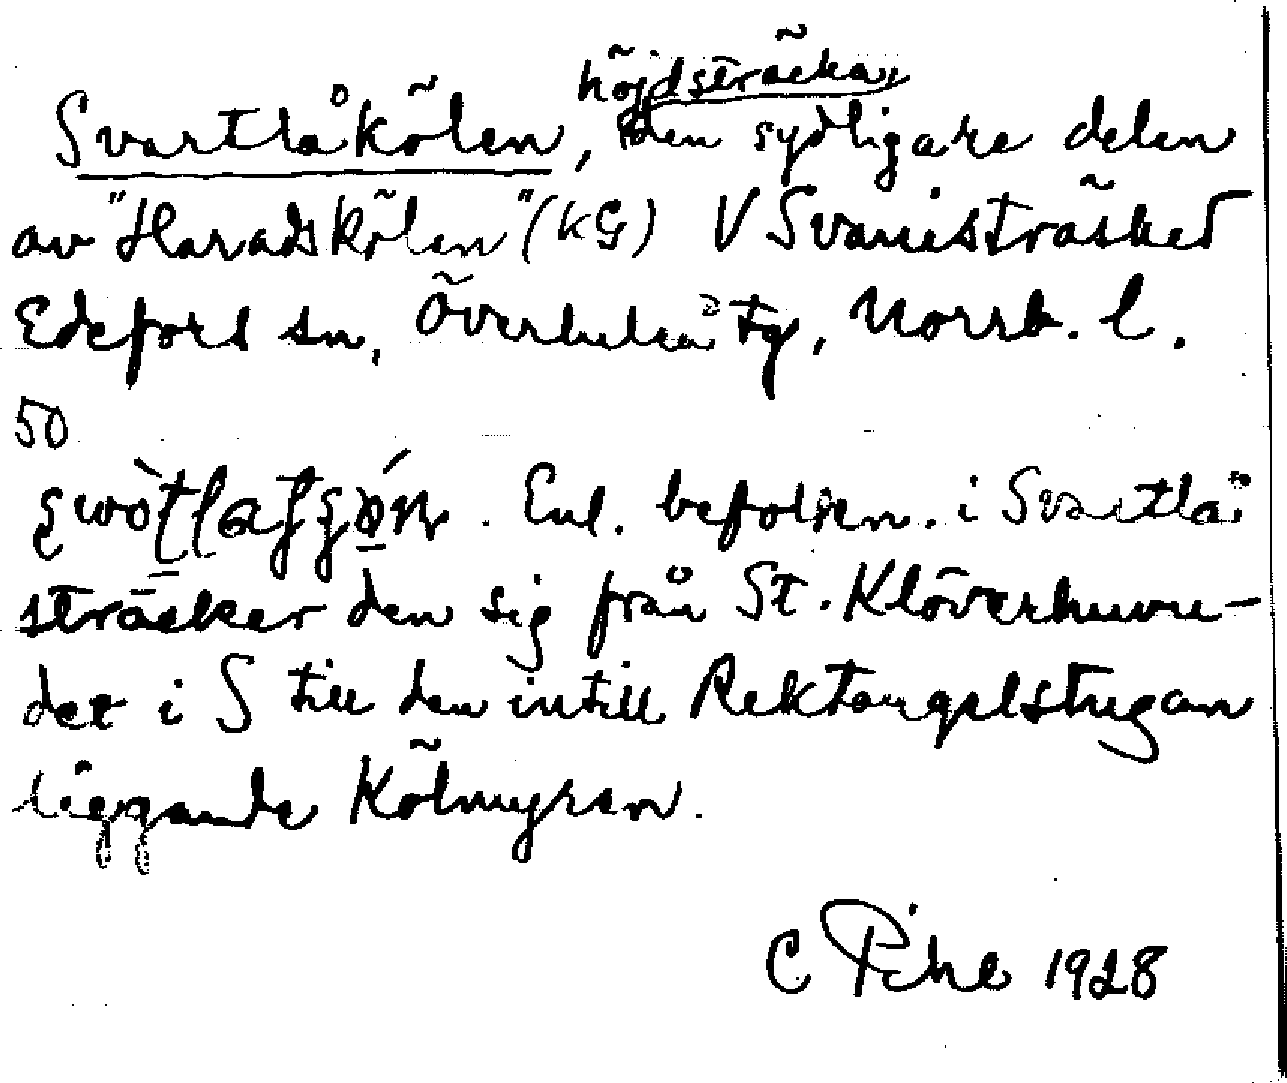 höjdsträcka,
Svartlåkölen, den sydligare delen
av "Haradskölen" (KG) V Svanisträsket
Edefors sn, Överluleå tg, Norrb. l.
50
. Enl. befolkn. i Svartlå
sträcker den sig från St. Klöverhuvu-
det i S till den intill Rektangelstugan
liggande Kölmyren.
C Pihe 1928